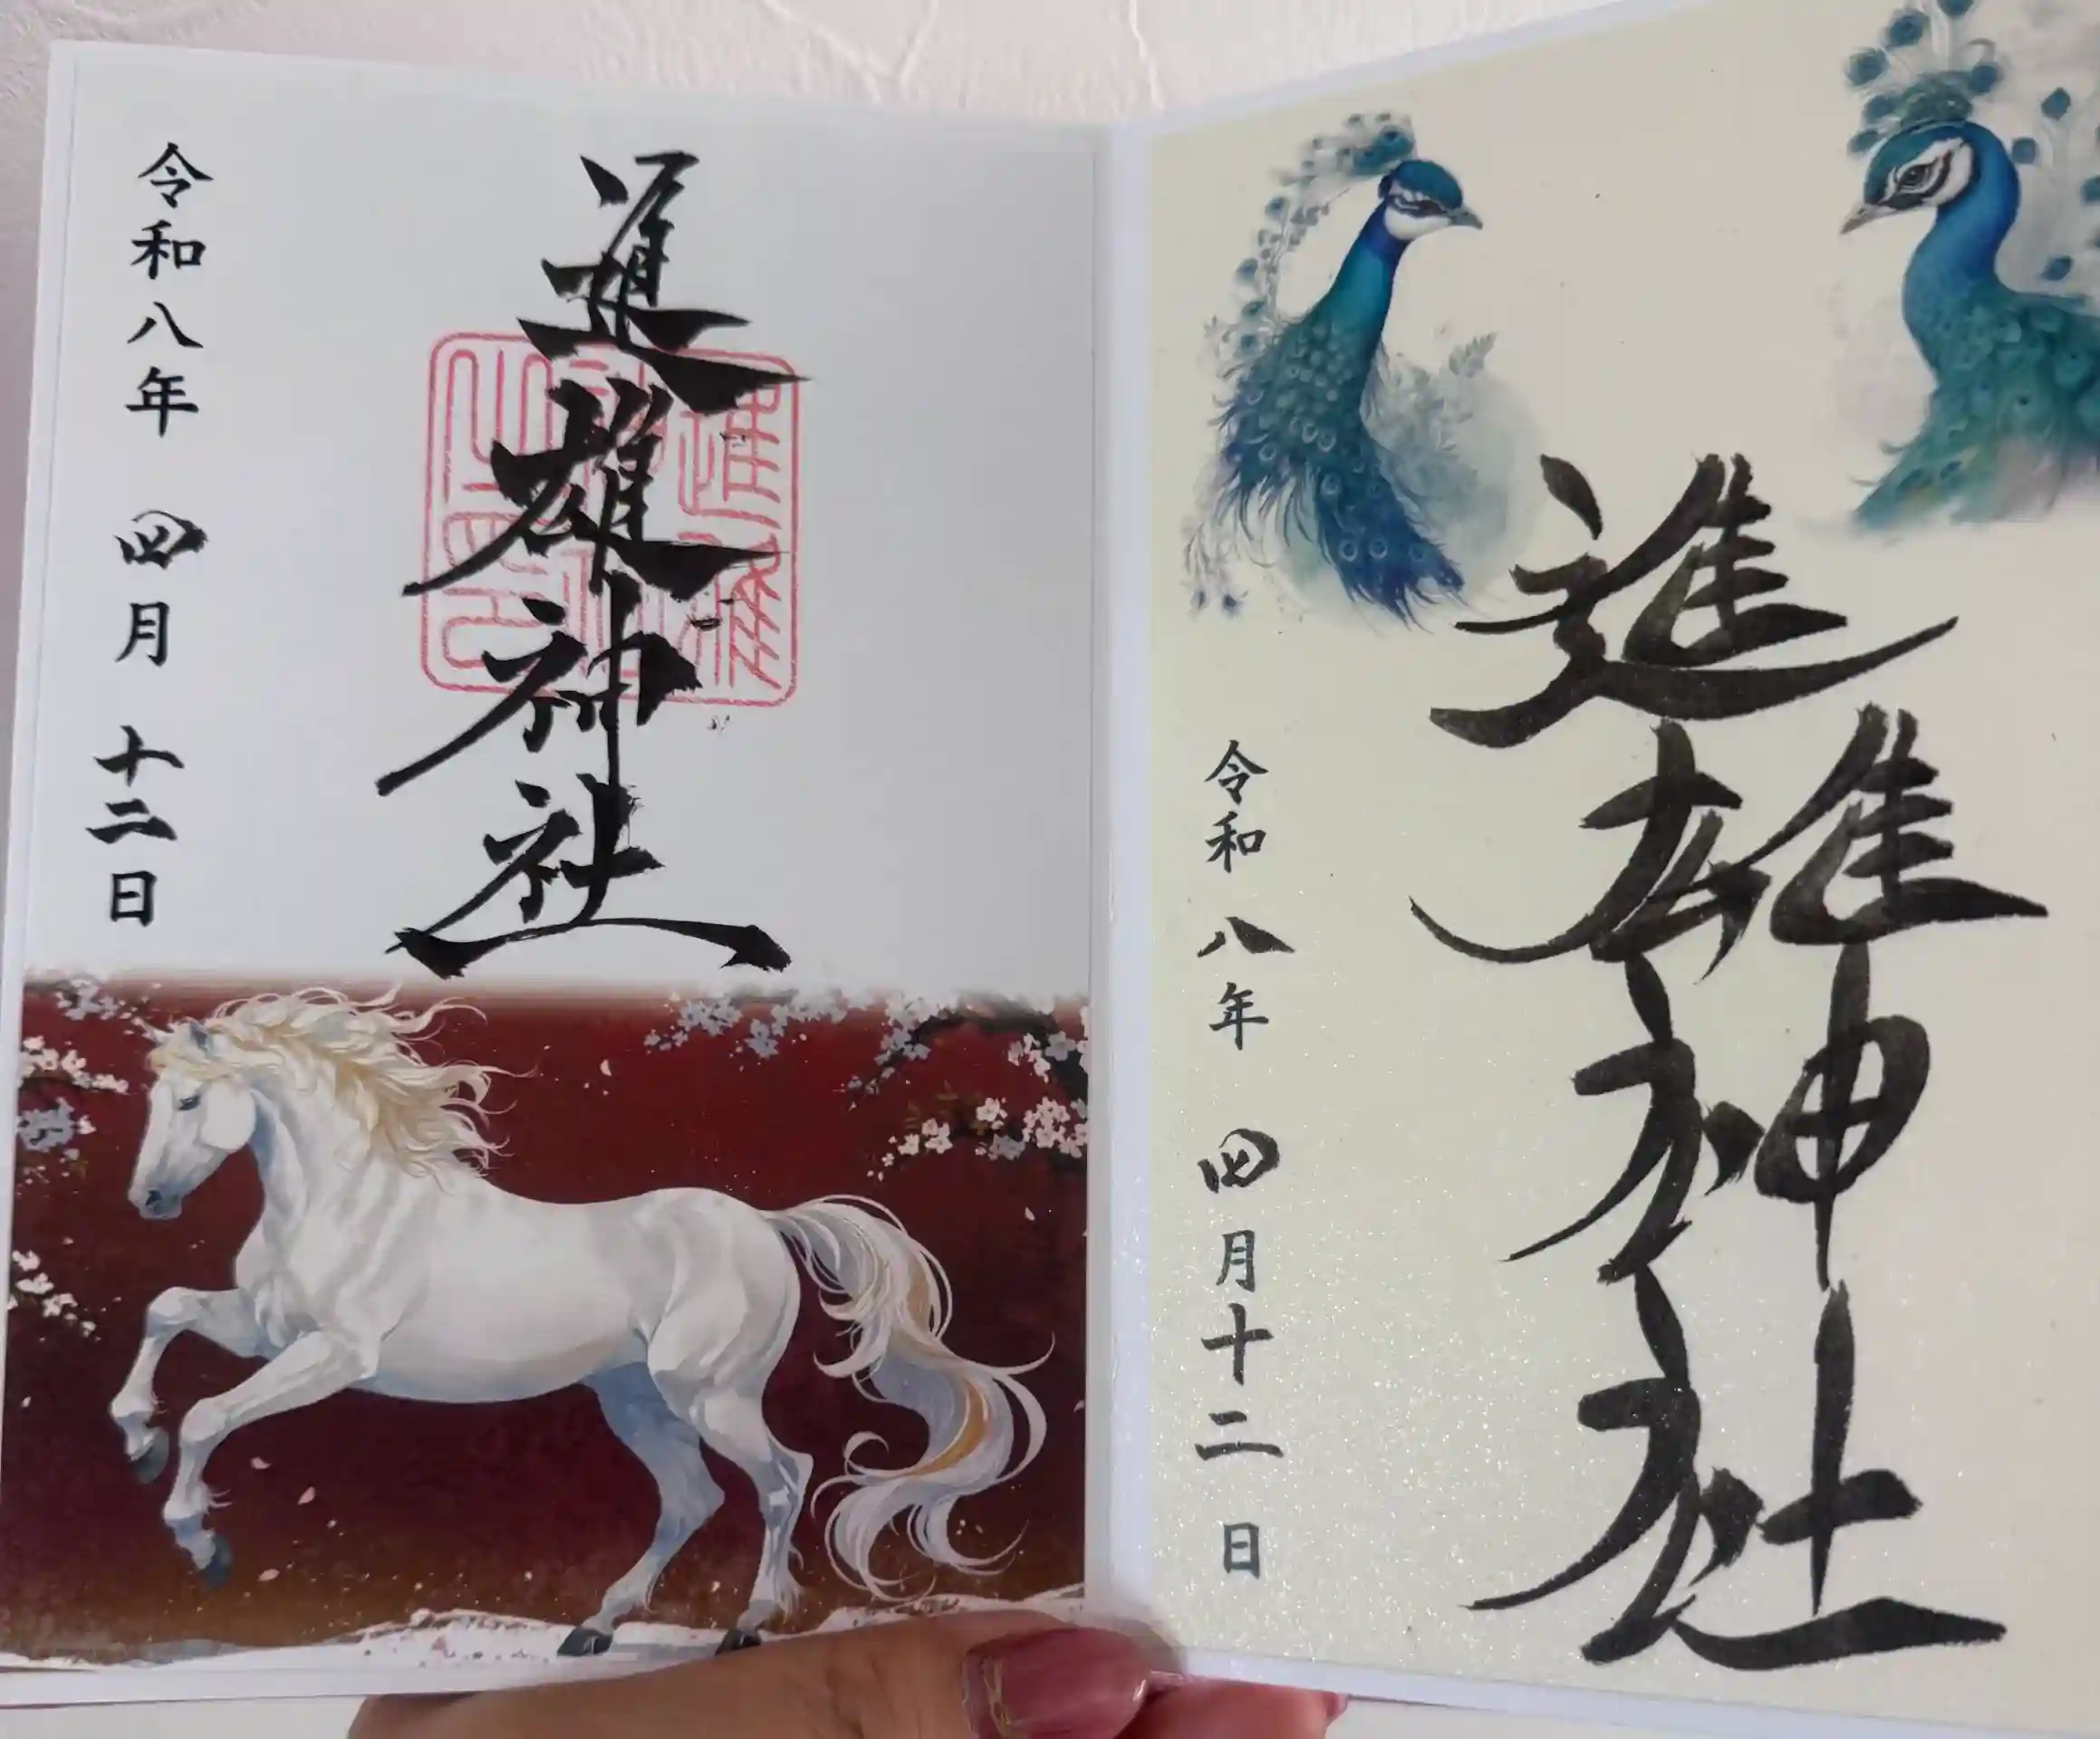 進雄神社
令和八年 四月 十二日
進雄神社
令和八年 四月十二日